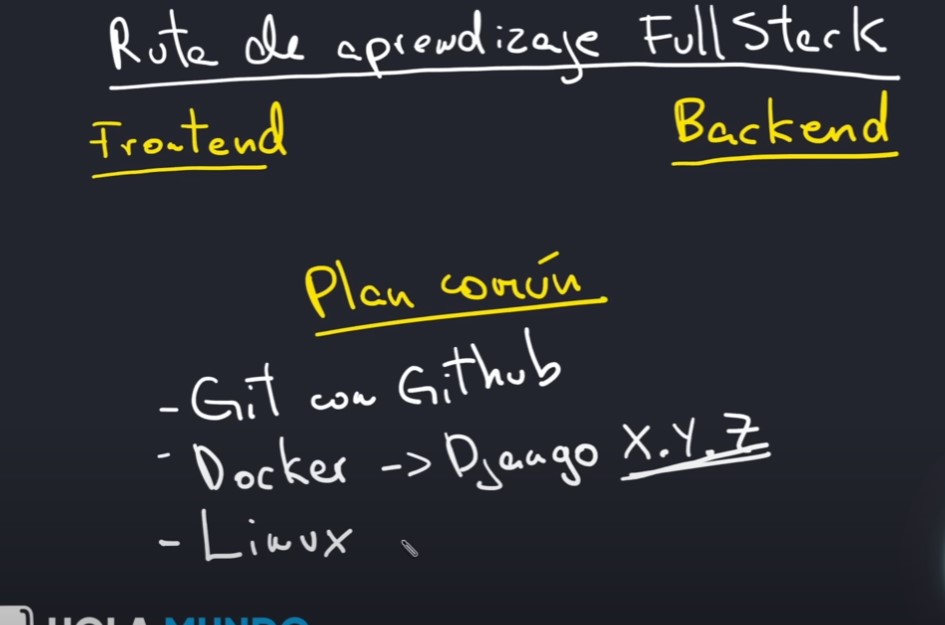 Ruta de aprendizaje FullStack
Frontend
Backend
Plan común
- Git con Github
- Docker -> Django X.Y.Z
- Linux
HOLA MUNDO